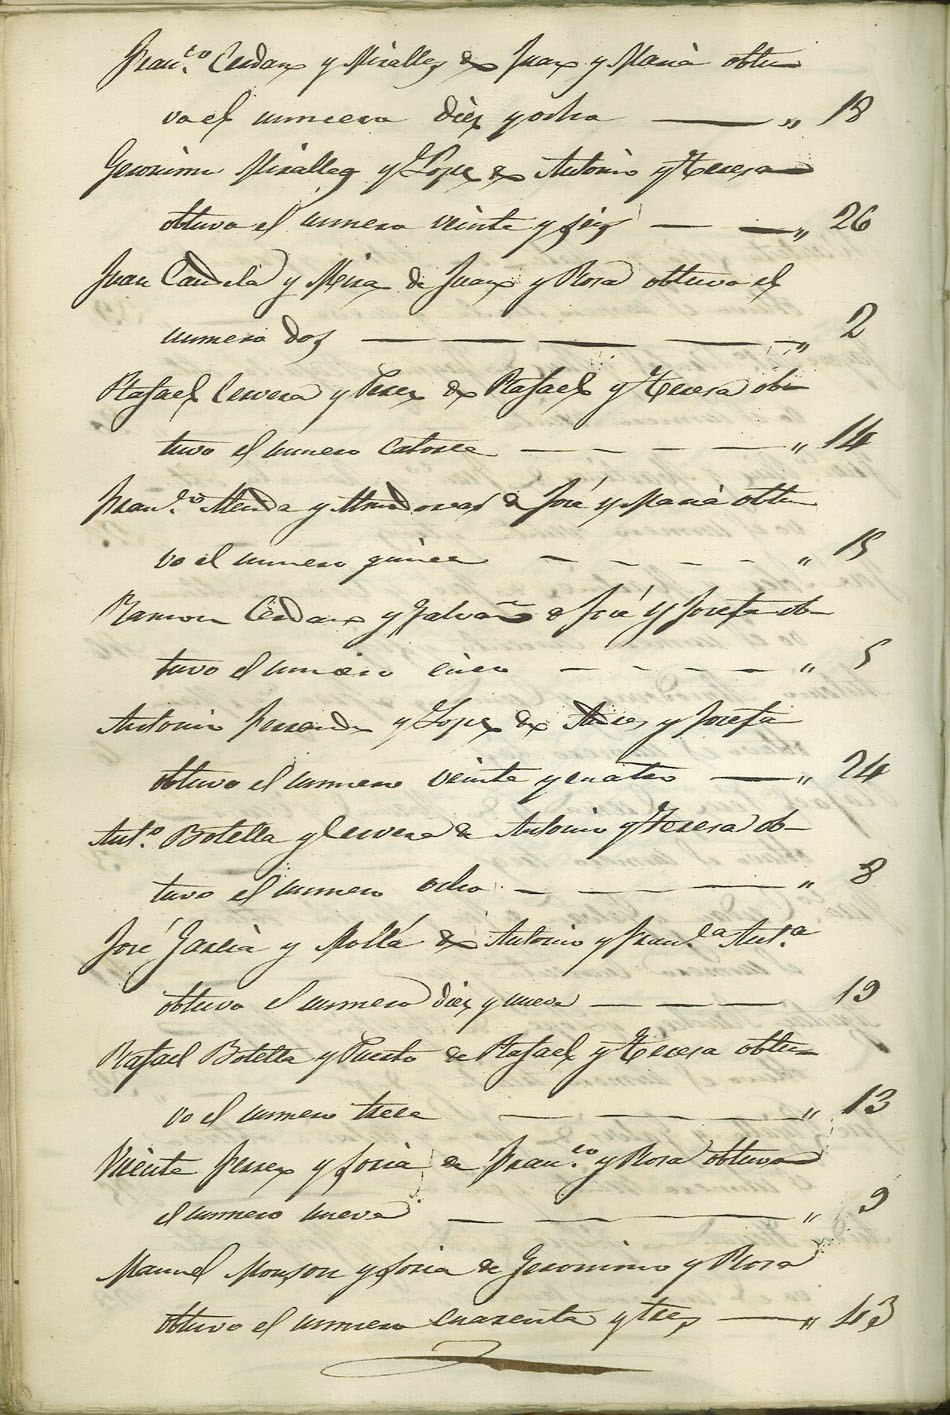 Fran.co Cerdan y Miralles de Juan y Maria obtu
vo el numero diez y ocho — „ 18
Geronimo Miralles y Lopez de Antonio y Teresa
obtuvo el numero veinte y seis — — „ 26
Juan Candela y Mira de Juan y Rosa obtuvo el
numero dos — — — — — „ 2
Rafael Cervera y Perez de Rafael y Teresa ob-
tuvo el numero catorce — — — — — „ 14
Fran.co y de José y Maria obtu
vo el numero quince — — — — — „ 15
Ramon Cerdan y Galvañ de José y Josefa ob-
tuvo el numero cinco — — — — — „ 5
Antonio Ferrandez y Lopez de y Josefa
obtuvo el numero veinte y cuatro — „ 24
Ant.o Botella y Cervera de Antonio y Teresa ob-
tuvo el numero ocho — — — — „ 8
José Garcia y Mollá de Antonio y Fran.ca Ant.a
obtuvo el numero diez y nueve — — — 19
Rafael Botella y Puerto de Rafael y Teresa obtu-
vo el numero trece — — — „ 13
Vicente Ferrer y Soria de Fran.co y Rosa obtuvo
el numero nueve — — — „ 9
Manuel Monzon y Soria de Geronimo y Rosa
obtuvo el numero cuarenta y tres — „ 43